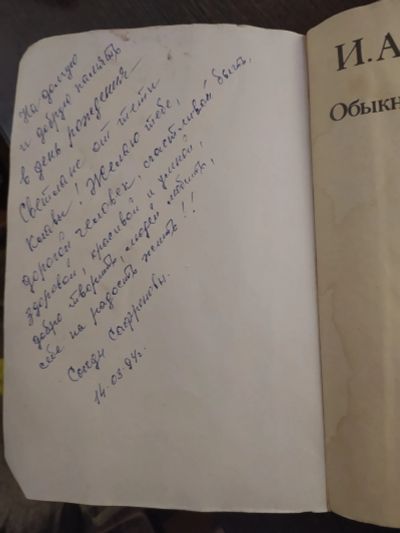 На долгую
и добрую память
в день рождения
Светлане от тёти
Клавы! Желаю тебе,
дорогой человек, счастливой быть,
здоровой, красивой и умной,
добро творить, людей любить,
себе на радость жить!!
Сафроновы.
14.03.94г.
И.А
Обыкн